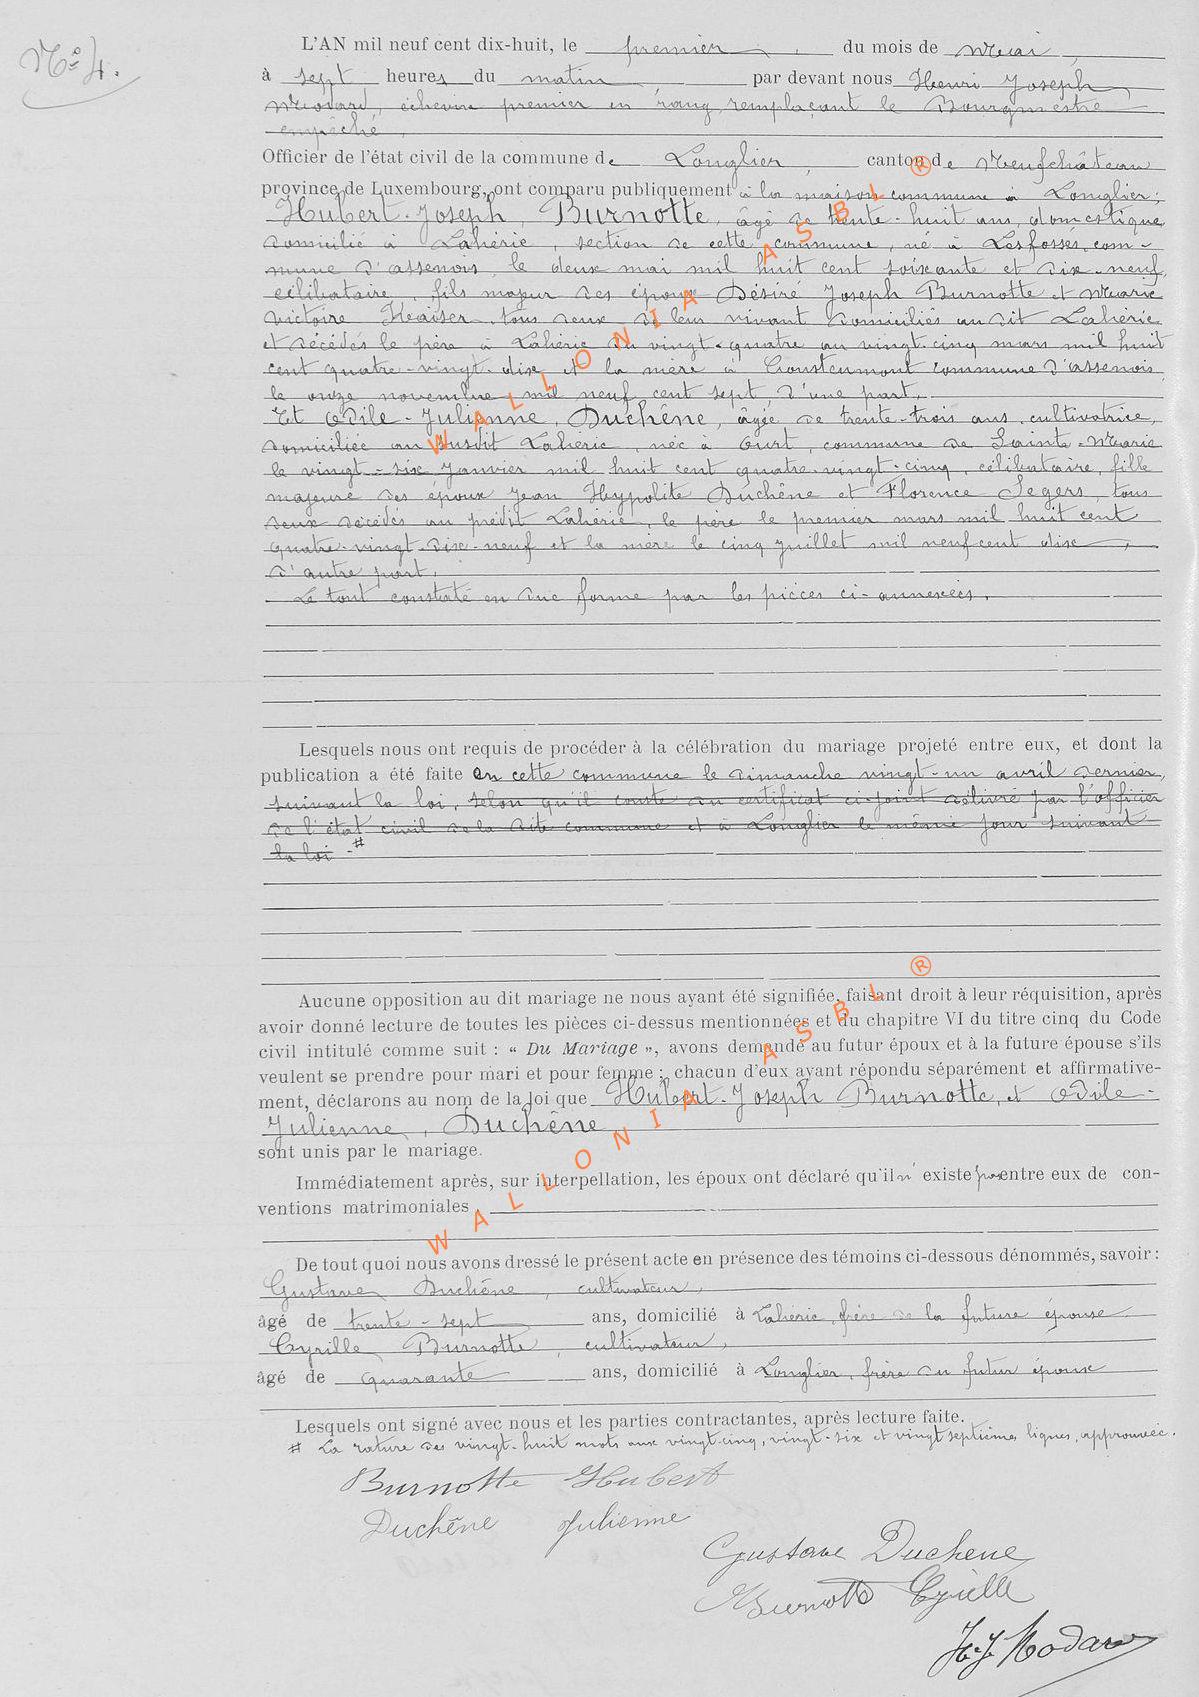 N° 4.
L'AN mil neuf cent dix-huit, le premier du mois de Mai,
à sept heures du matin par devant nous Henri Joseph
Modard, échevin premier en rang remplaçant le Bourgmestre
empêché,
Officier de l'état civil de la commune de Longlier, canton de Neufchâteau
province de Luxembourg, ont comparu publiquement à la maison commune à Longlier;
Hubert-Joseph, Burnotte, âgé de trente-huit ans, domestique
domicilié à Lahérie, section de cette commune, né à Lesfossés, com-
mune d'Assenois, le deux mai mil huit cent soixante et dix-neuf,
célibataire, fils majeur des époux Désiré Joseph Burnotte et Marie
Victoire Kaiser, tous deux de leur vivant domiciliés au dit Lahérie
et décédés le père à Lahérie du vingt-quatre au vingt-cinq mars mil huit
cent quatre-vingt-dix et la mère à commune d'Assenois
le onze novembre mil neuf cent sept, d'une part.
Et Odile-Julienne, Duchêne, âgée de trente-trois ans, cultivatrice,
domiciliée au susdit Lahérie, née à Ourt, commune de Sainte-Marie
le vingt-six Janvier mil huit cent quatre-vingt-cinq, célibataire, fille
majeure des époux Jean Hyppolite Duchêne et Florence Segers, tous
deux décédés au prédit Lahérie, le père le premier mars mil huit cent
quatre-vingt-dix-neuf et la mère le cinq juillet mil neuf cent dix,
d'autre part.
Le tout constaté en due forme par les pièces ci-annexées.
Lesquels nous ont requis de procéder à la célébration du mariage projeté entre eux, et dont la
publication a été faite en cette commune le dimanche vingt-un avril dernier,
suivant la loi, selon qu'il conste du certificat ci-joint délivré par l'officier
de l'état civil de la dite commune et à Longlier le même jour suivant
la loi. #
Aucune opposition au dit mariage ne nous ayant été signifiée, faisant droit à leur réquisition, après
avoir donné lecture de toutes les pièces ci-dessus mentionnées et du chapitre VI du titre cinq du Code
civil intitulé comme suit : « Du Mariage », avons demandé au futur époux et à la future épouse s'ils
veulent se prendre pour mari et pour femme ; chacun d'eux ayant répondu séparément et affirmative-
ment, déclarons au nom de la loi que Hubert-Joseph Burnotte, et Odile-
Julienne, Duchêne
sont unis par le mariage.
Immédiatement après, sur interpellation, les époux ont déclaré qu'il n'existe pas entre eux de con-
ventions matrimoniales.
De tout quoi nous avons dressé le présent acte en présence des témoins ci-dessous dénommés, savoir :
Gustave Duchêne, cultivateur,
âgé de trente-sept ans, domicilié à Lahérie, frère de la future épouse
Cyrille Burnotte, cultivateur,
âgé de quarante ans, domicilié à Longlier, frère du futur époux
Lesquels ont signé avec nous et les parties contractantes, après lecture faite.
# La rature des vingt-huit mots aux vingt-cinq, vingt-six et vingt septième lignes, approuvée.
Burnotte Hubert
Duchêne Julienne
Gustave Duchene
Burnotte Cyrille
H. J. Modard
WALLONIA ASBL ®
WALLONIA ASBL ®